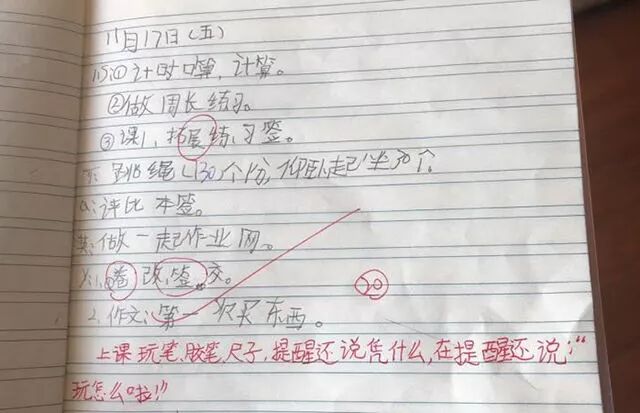 11月17日(五)
11.5:①计时口算,计算。
②做周长练习。
③课1、拓展练习签。
跳绳(130个/份,仰卧起坐30个
a:评比本签。
英:做一起作业网。
y:1.卷改,签。交。
2.作文:第一次买东西。
20
上课玩笔、胶笔、尺子,提醒还说凭什么,在提醒还说:“
玩怎么啦!”